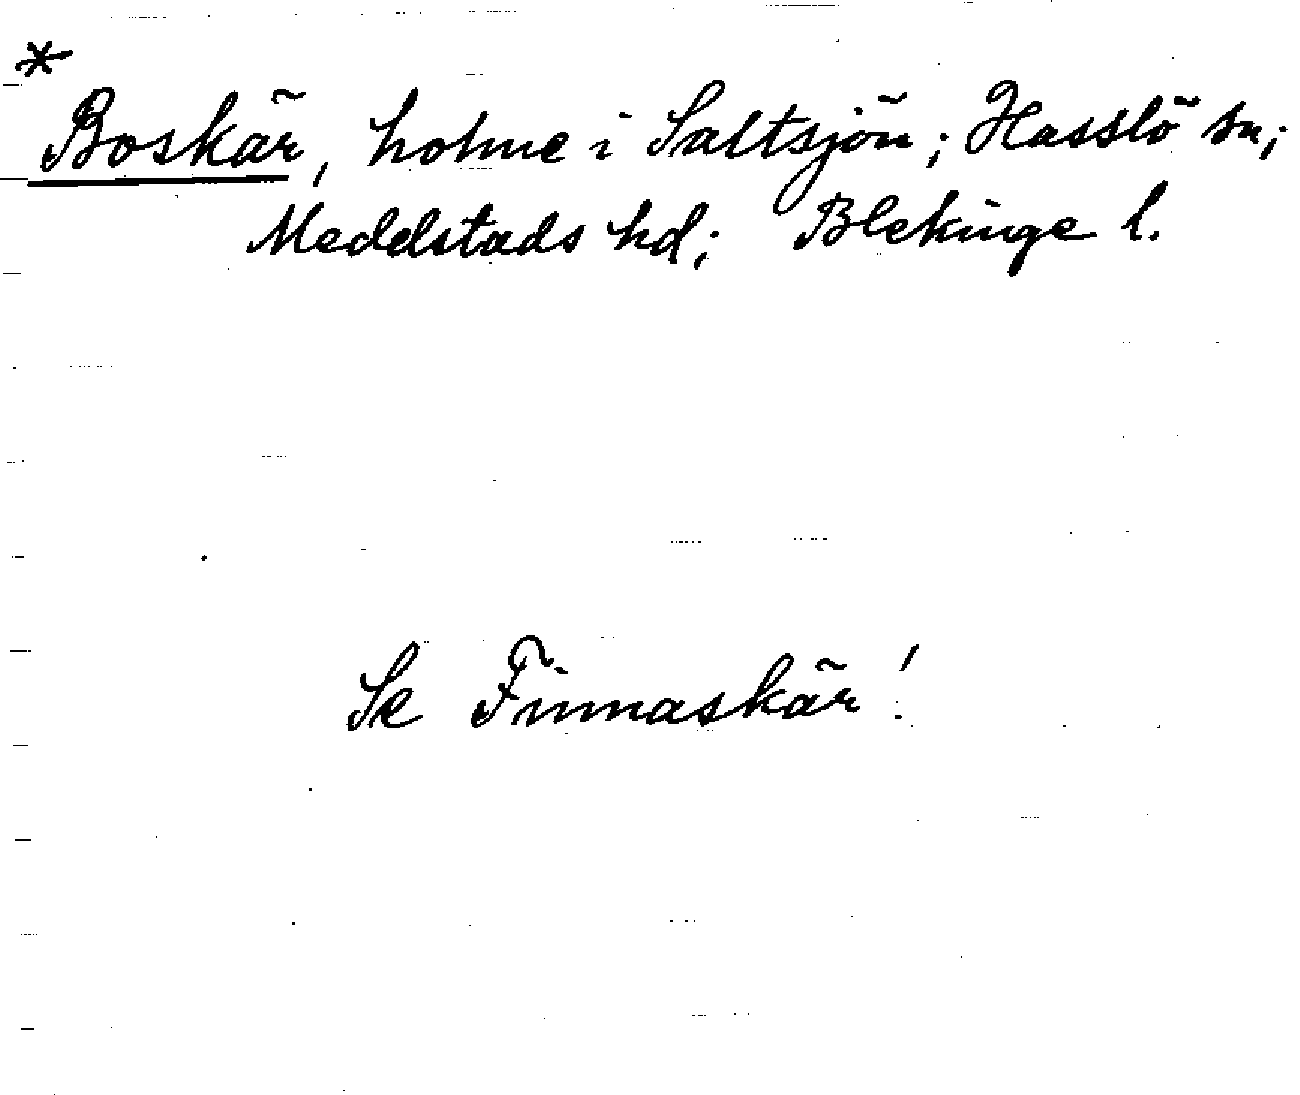 *
Boskär, holme i Saltsjön; Hasslö sn;
Medelstads hd; Blekinge l.
Se Finnaskär!